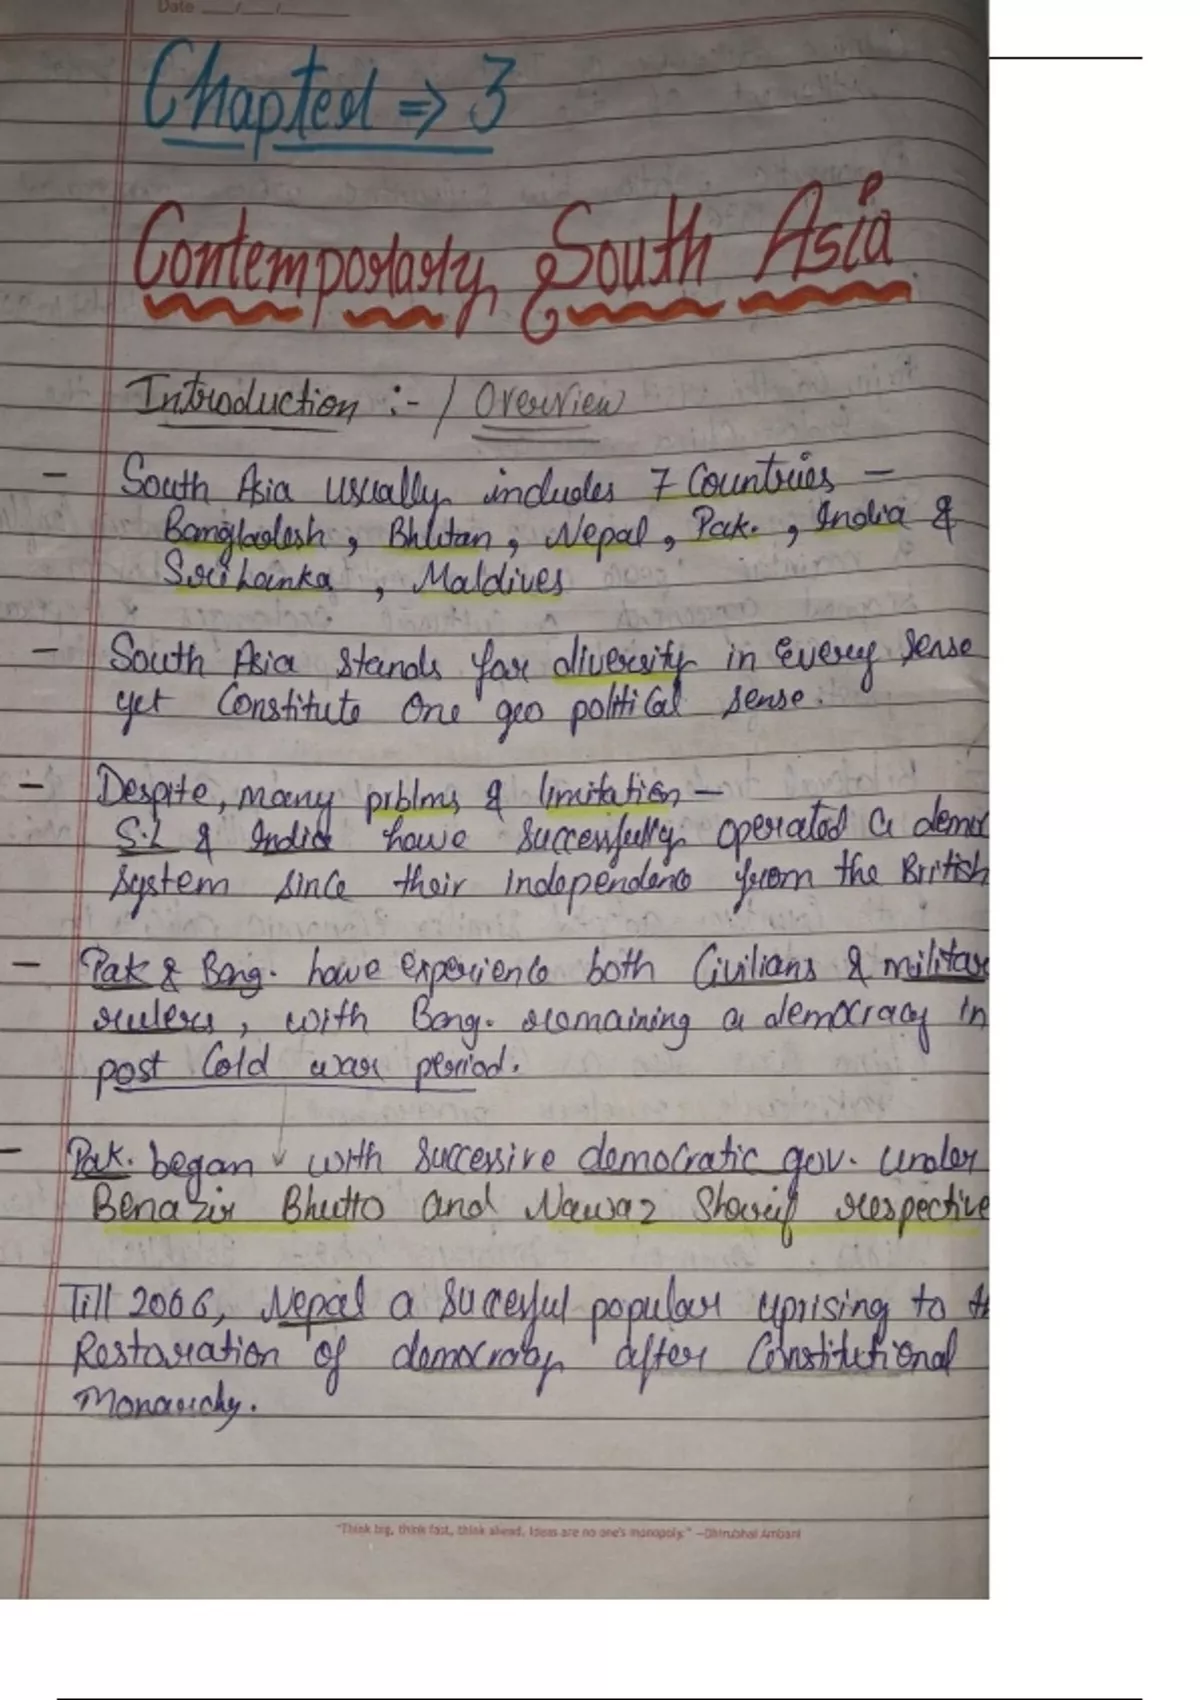 Date __/__/__
Chapter => 3
Contemporary South Asia
Introduction :- / Overview
- South Asia usually includes 7 Countries -
Bangladesh, Bhutan, Nepal, Pak., India &
Sri Lanka, Maldives
- South Asia stands for diversity in every sense
yet Constitute One geo political sense.
- Despite, many prblms & limitation -
S.L & India have successfully operated a democ
system since their independence from the British
- Pak & Bang. have experience both Civilians & militar
rulers, with Bang. remaining a democracy in
post Cold war period.
- Pak. began with successive democratic gov. under
Benazir Bhutto and Nawaz Sharif respective
Till 2006, Nepal a Sucessful popular uprising to th
Restoration of democracy after Constitutional
Monarchy.
"Think big, think fast, think ahead. Ideas are no one's monopoly." —Dhirubhai Ambani